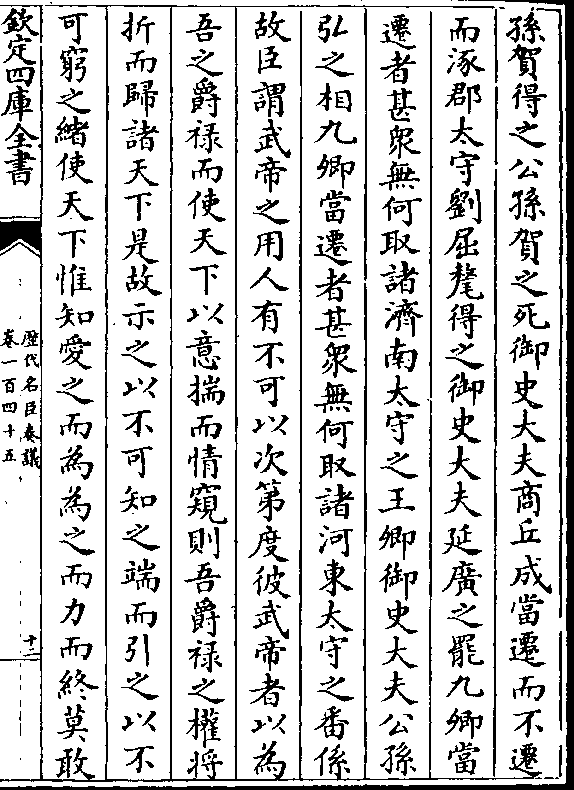 孫賀得之公孫賀之死御史大夫商丘成當遷而不遷
而涿郡太守劉屈氂得之御史大夫延廣之罷九卿當
遷者甚衆無何取諸濟南太守之王卿御史大夫公孫
弘之相九卿當遷者甚衆無何取諸河東太守之番係
故臣謂武帝之用人有不可以次第度彼武帝者以為
吾之爵禄而使天下以意揣而情窺則吾爵禄之權将
折而歸諸天下是故示之以不可知之端而引之以不
可窮之緒使天下惟知愛之而為為之而力而終莫敢
欽定四庫全書
歴代名臣奏議
卷一百四十五
十二